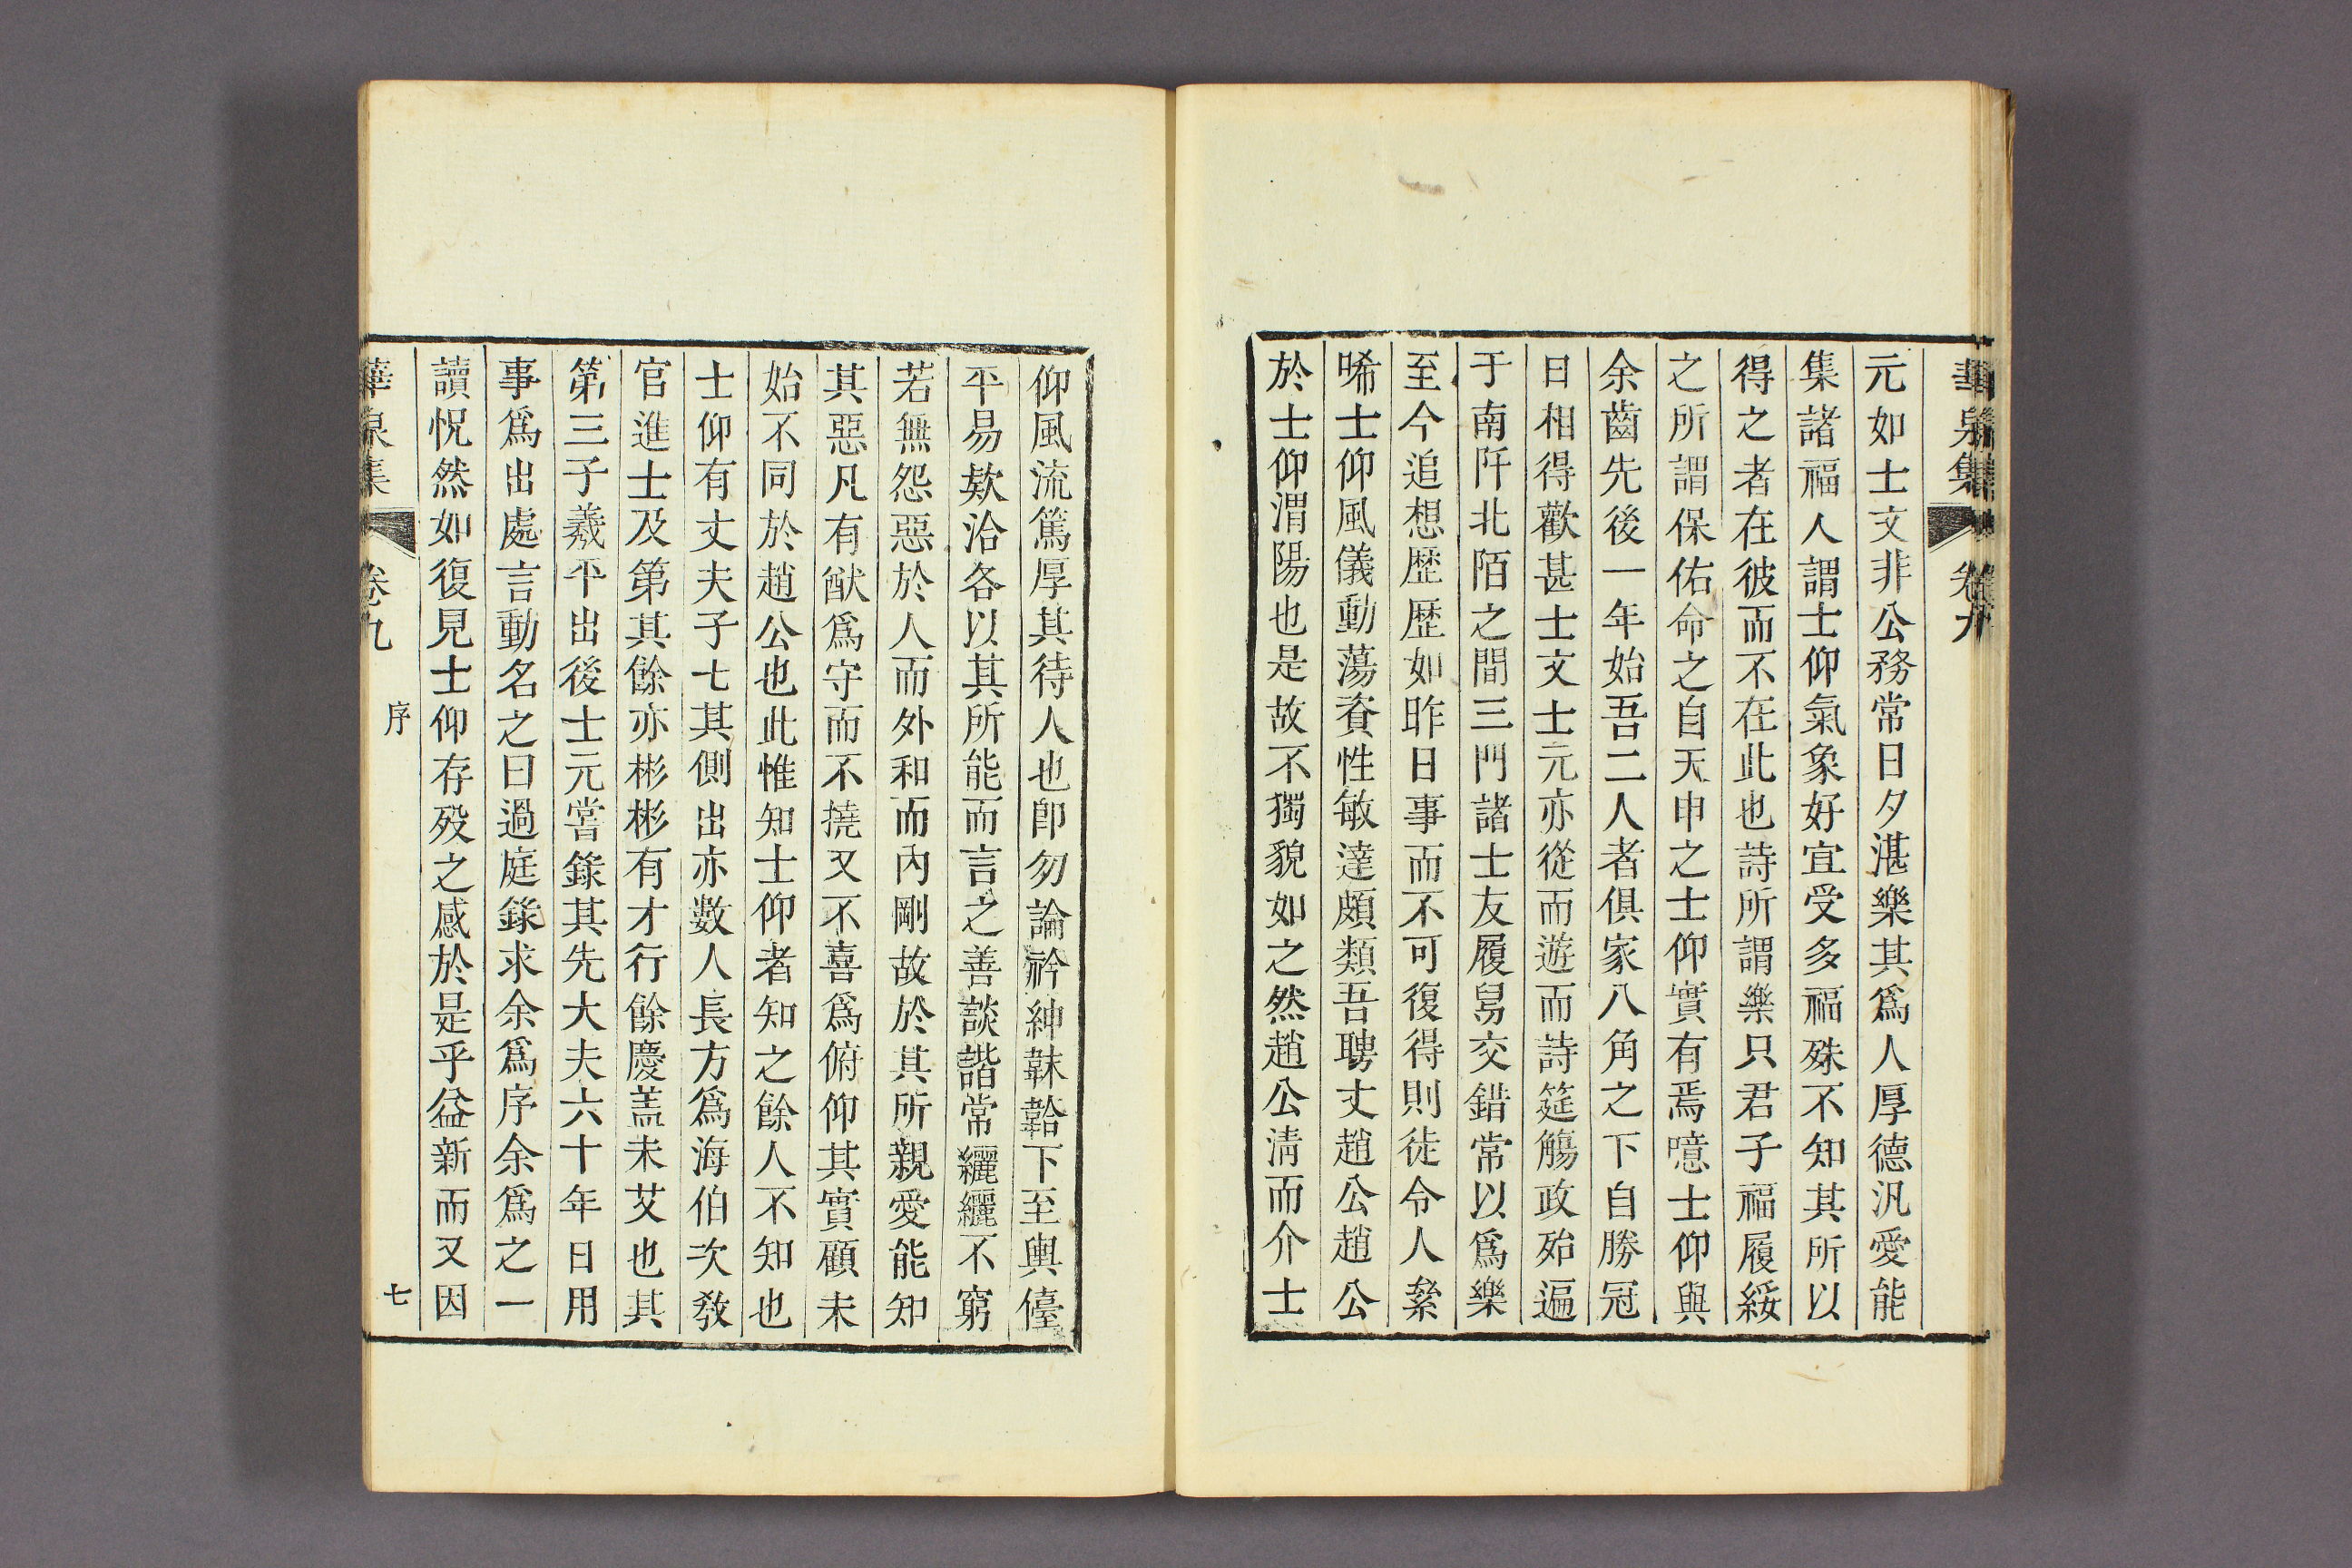 華泉集 卷九
元如士文非公務常日夕湛樂其爲人厚德汎愛能
集諸福人謂士仰氣象好宜受多福殊不知其所以
得之者在彼而不在此也詩所謂樂只君子福履綏
之所謂保佑命之自天申之士仰實有焉噫士仰與
余齒先後一年始吾二人者俱家八角之下自勝冠
日相得歡甚士文士元亦從而遊而詩筵觴政殆遍
于南阡北陌之間三門諸士友履舄交錯常以爲樂
至今追想歷歷如昨日事而不可復得則徒令人縈
晞士仰風儀動蕩資性敏達頗類吾聘丈趙公趙公
於士仰渭陽也是故不獨貌如之然趙公淸而介士
仰風流篤厚其待人也卽勿論衿紳韎韐下至輿儓
平易欵洽各以其所能而言之善談諧常纚纚不窮
若無怨惡於人而外和而內剛故於其所親愛能知
其惡凡有猷爲守而不撓又不喜爲俯仰其實顧未
始不同於趙公也此惟知士仰者知之餘人不知也
士仰有丈夫子七其側出亦數人長方爲海伯次敎
官進士及第其餘亦彬彬有才行餘慶盖未艾也其
第三子羲平出後士元嘗錄其先大夫六十年日用
事爲出處言動名之曰過庭錄求余爲序余爲之一
讀怳然如復見士仰存歿之感於是乎益新而又因
華泉集 卷九 序 七